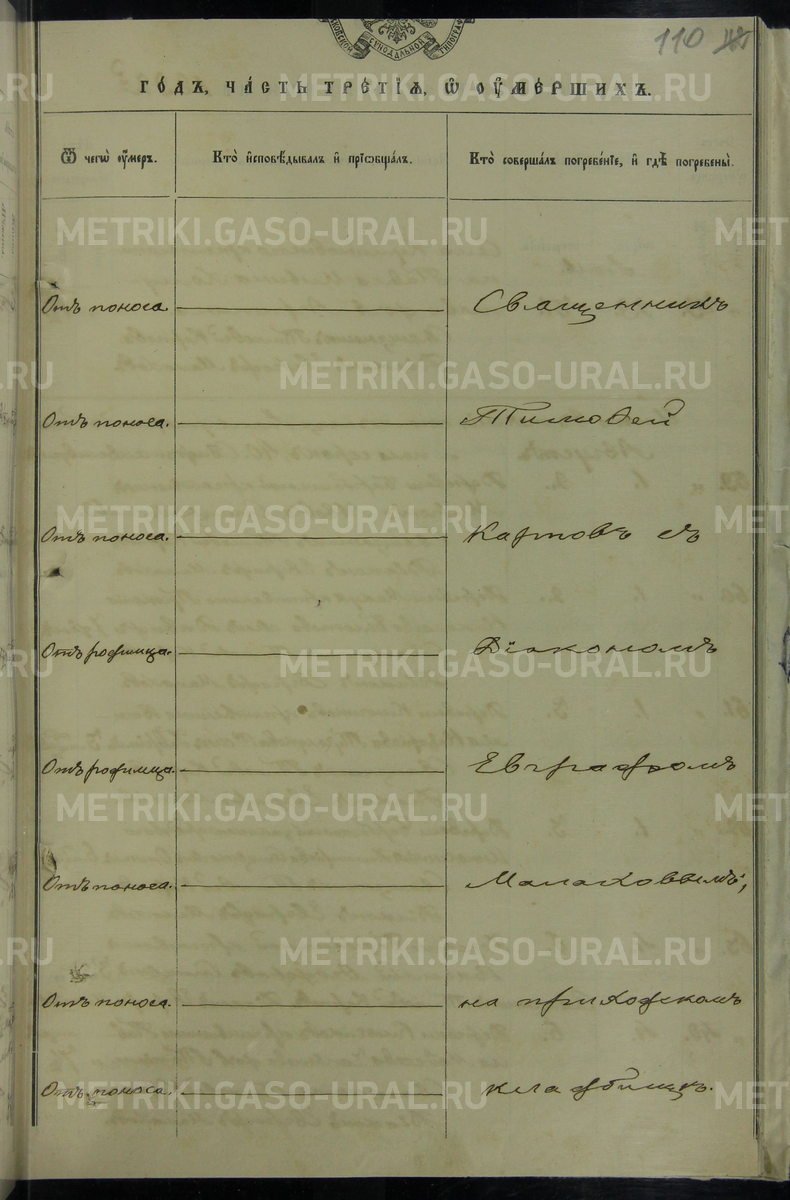 МОСКОВСКОЙ СѴНОДАЛЬНОЙ ТИПОГРАФ
110
ГО́ДЪ, ЧА́СТЬ ТРЕ́ТЇѦ, Ѡ҆ ОУ҆МЕ́РШИХЪ.
Ѿ чегѡ̀ оу҆́меръ.
Кто̀ и҆сповѣ́дывалъ и҆ прїѡбща́лъ.
Кто̀ соверша́лъ погребе́нїе, и҆ гдѣ̀ погребены̀.
Отъ поноса. Священникъ
Отъ поноса. Тимоѳей
Отъ поноса. Карповъ съ
Отъ родимца. Діакономъ
Отъ родимца. Евграфомъ
Отъ поноса. Малаховымъ,
Отъ поноса. на приходскомъ
Отъ поноса. кладбищѣ.
METRIKI.GASO-URAL.RU